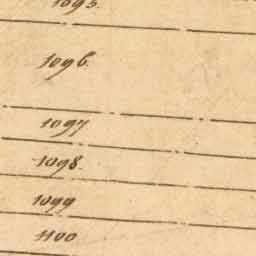 1095.
1096.
1097
1098.
1099
1100